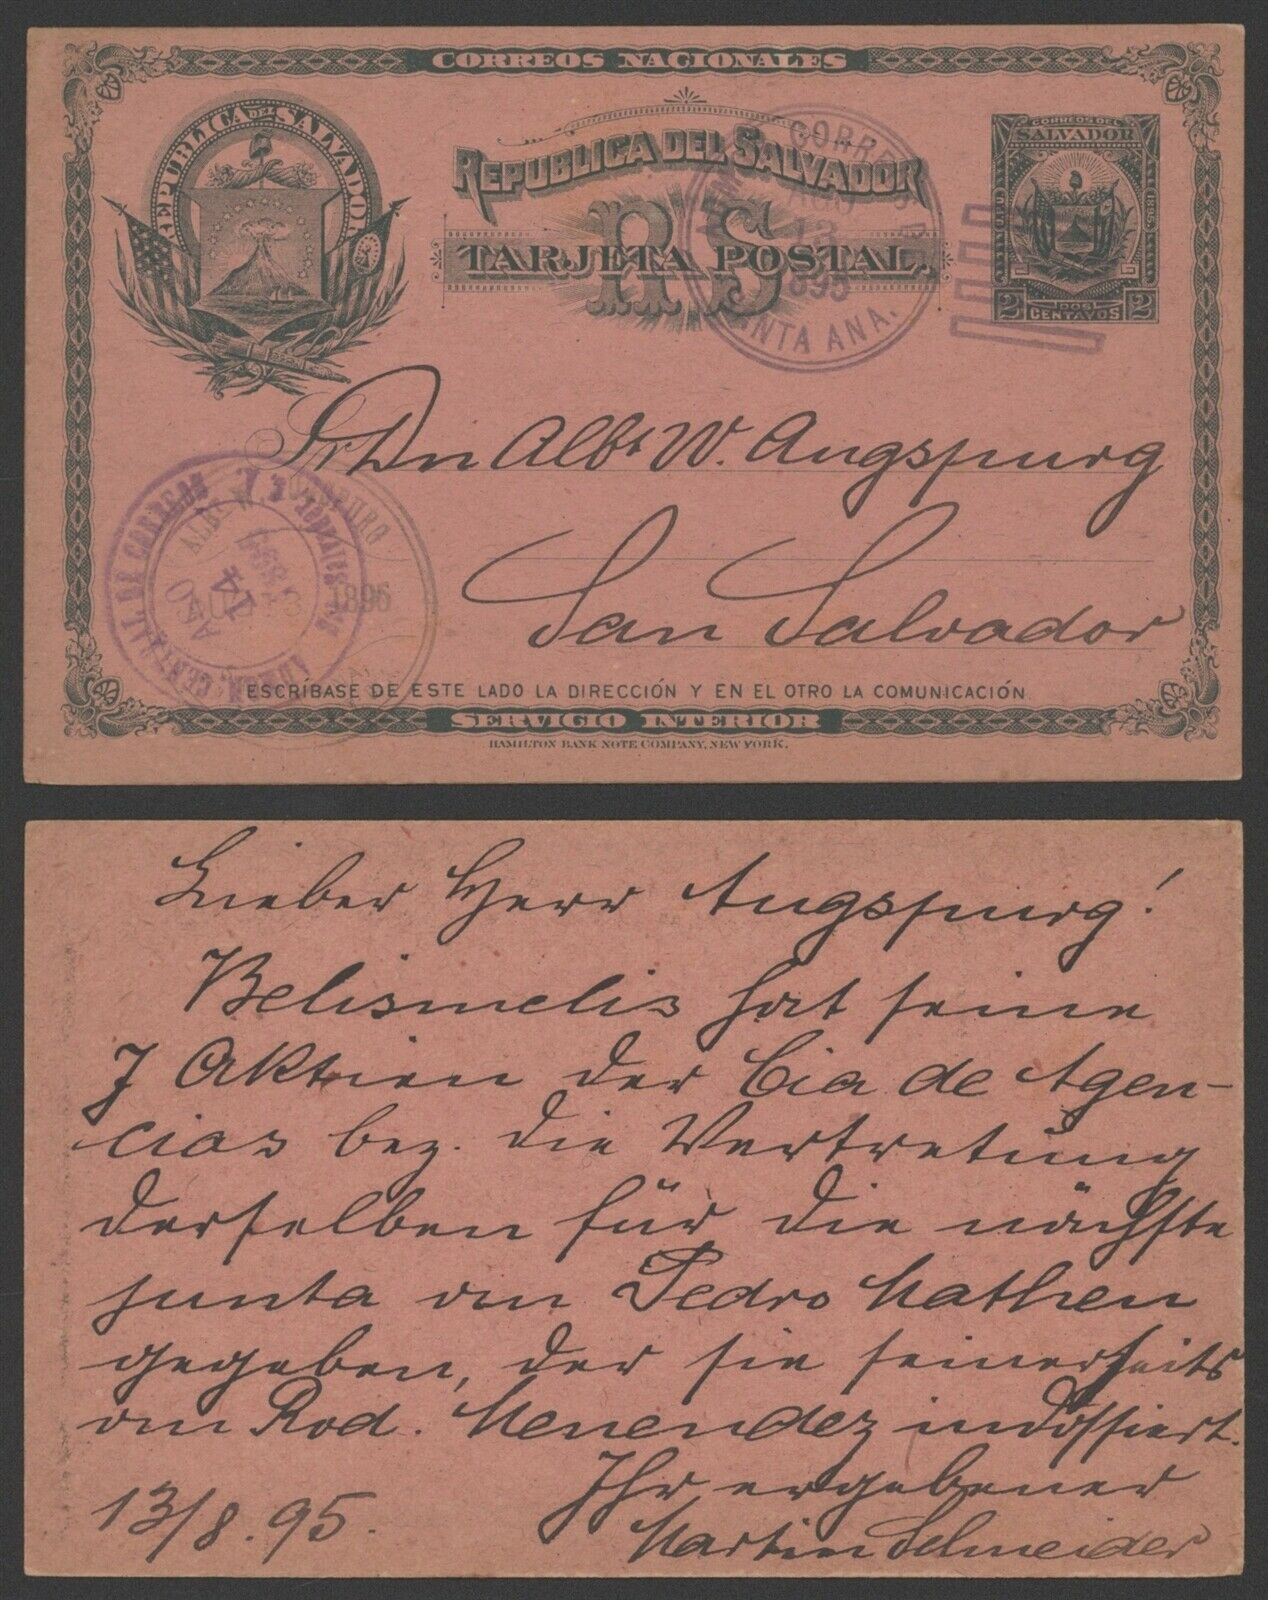 CORREOS NACIONALES
REPUBLICA DEL SALVADOR
REPUBLICA DEL SALVADOR
RS
TARJETA POSTAL.
CORREOS DEL
SALVADOR
1895
2 DOS 2
CENTAVOS
CORREOS
AGO
13
895
SANTA ANA.
Sr Dn Albt W. Augspurg
San Salvador
CENTRAL DE CORREOS
AGO
14
1895
ESCRÍBASE DE ESTE LADO LA DIRECCIÓN Y EN EL OTRO LA COMUNICACIÓN
SERVICIO INTERIOR
HAMILTON BANK NOTE COMPANY, NEW YORK.
Lieber Herr Augspurg!
Belismelis hat seine
7 Aktien der Cia de Agen-
cias bez. die Vertretung
derselben für die nächste
junta an Pedro Mathen
gegeben, der sie seinerseits
an Rod. Menendez indossiert.
Ihr ergebener
13/8.95. Martin Schneider